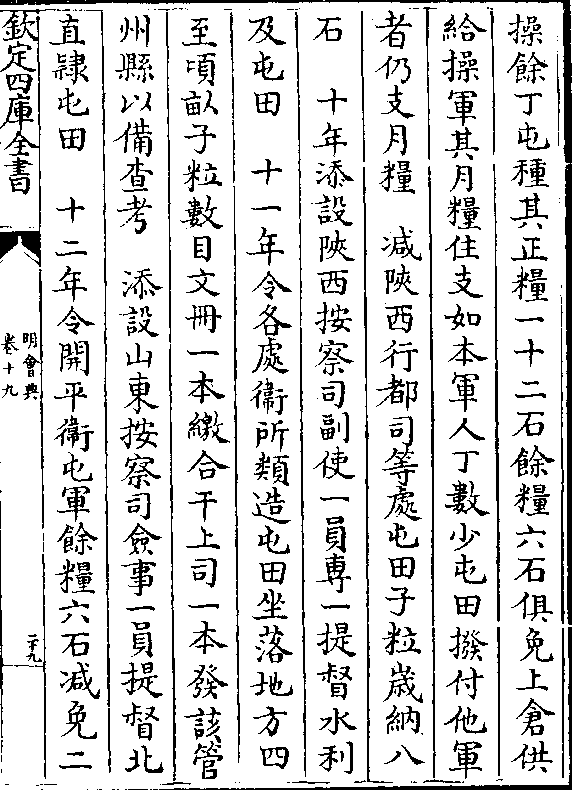 操餘丁屯種其正糧一十二石餘糧六石俱免上倉供
給操軍其月糧住支如本軍人丁數少屯田撥付他軍
者仍支月糧　減陜西行都司等處屯田子粒歲納八
石　十年添設陜西按察司副使一員專一提督水利
及屯田　十一年令各處衞所類造屯田坐落地方四
至頃畝子粒數目文冊一本繳合干上司一本發該管
州縣以備查考　添設山東按察司僉事一員提督北
直隸屯田　十二年令開平衞屯軍餘糧六石減免二
欽定四庫全書
明會典
卷十九
二十九